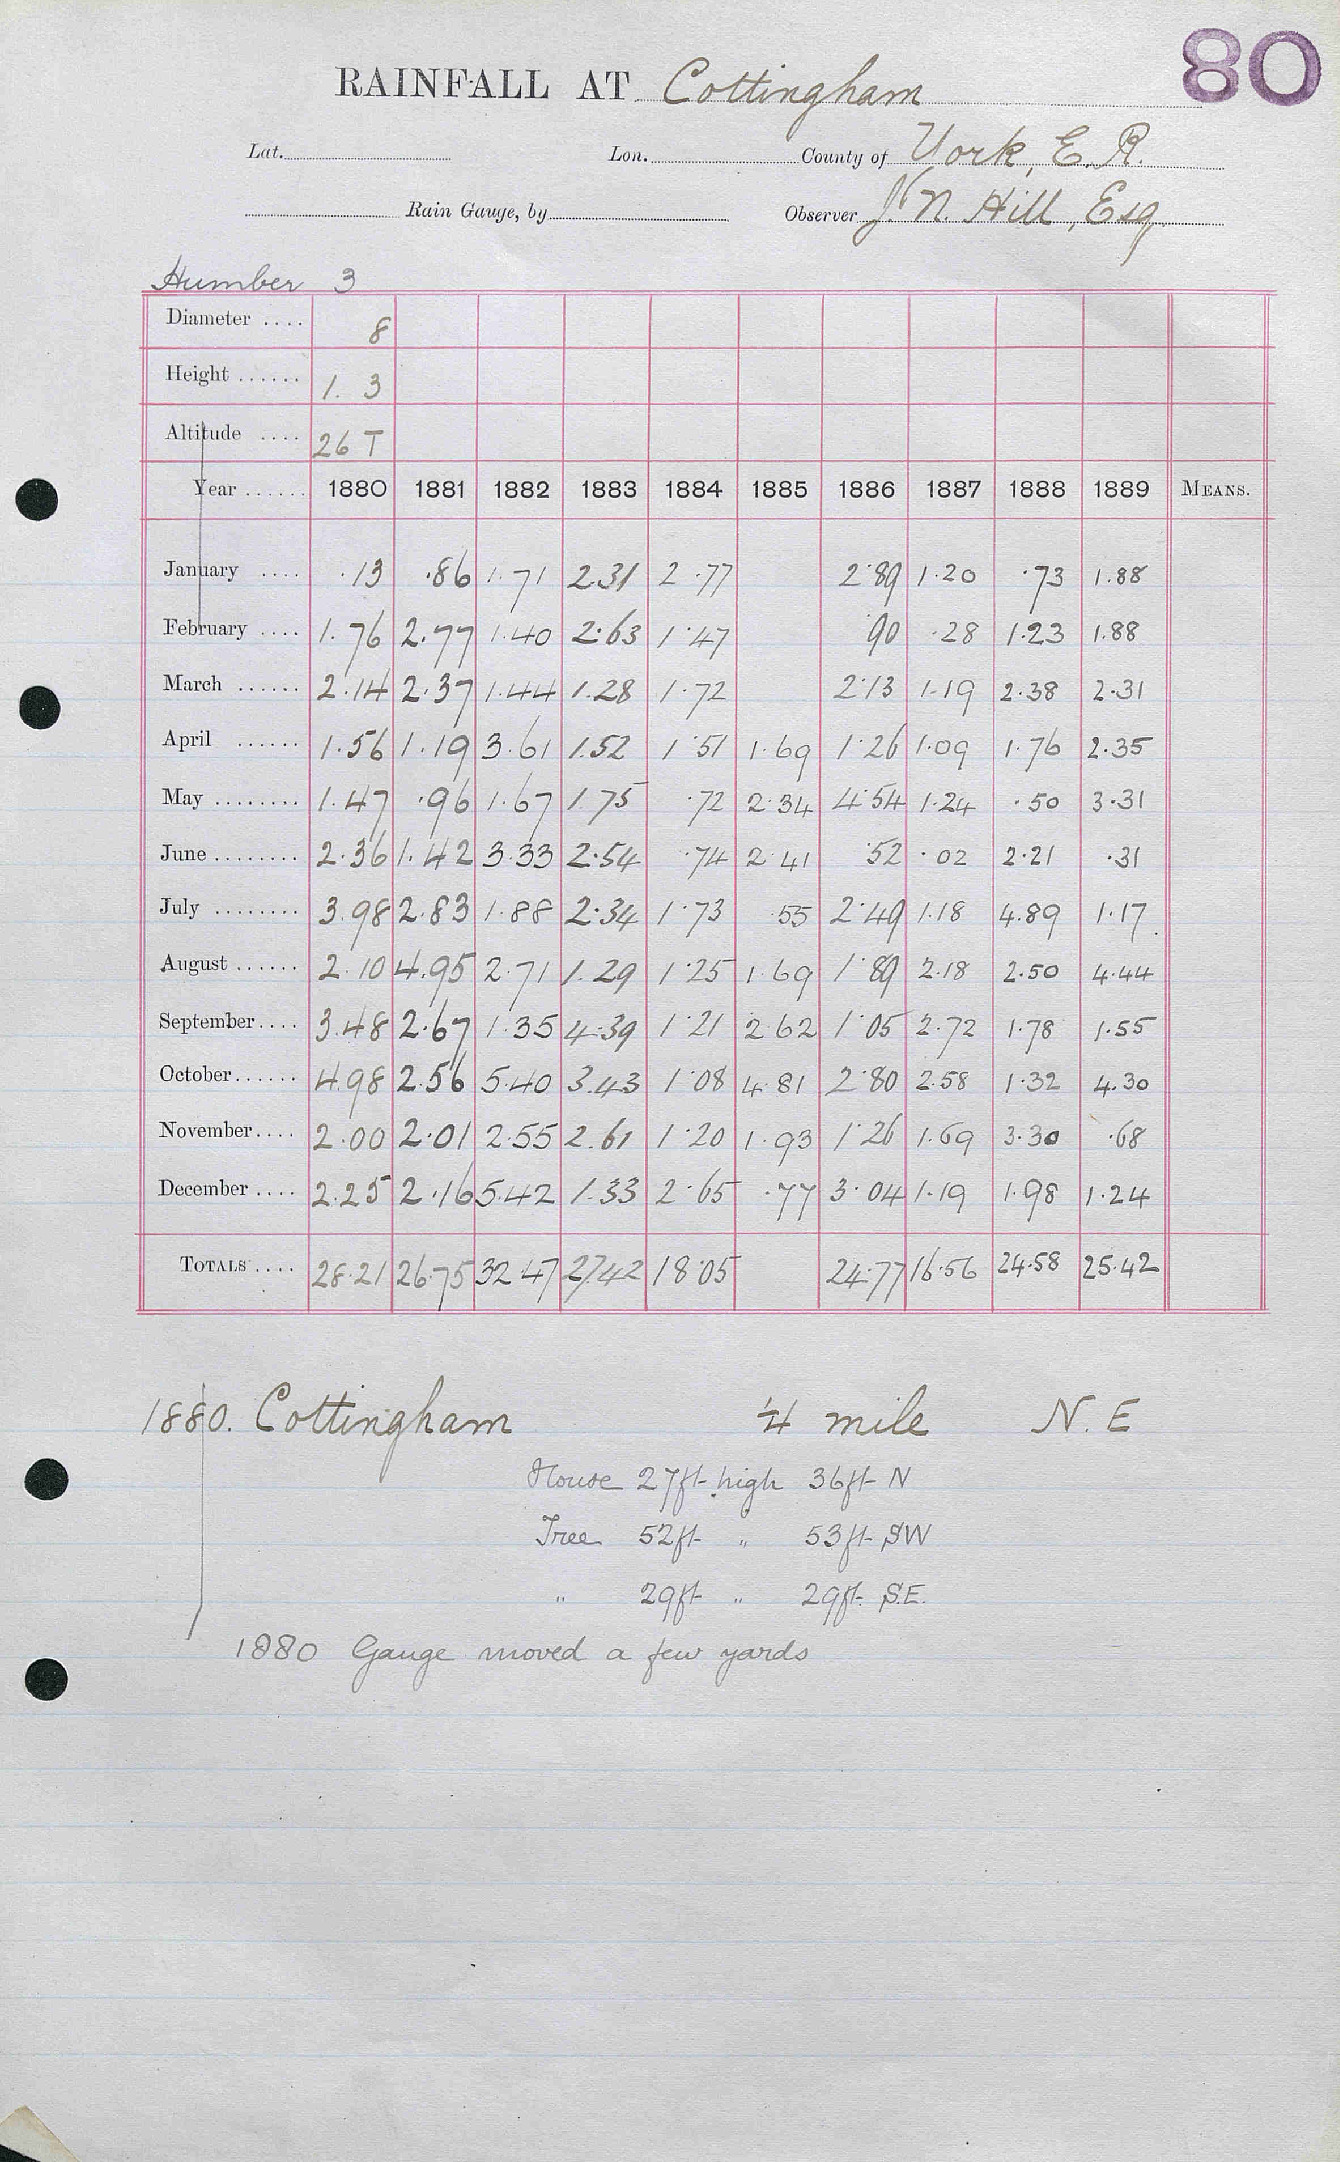 80
RAINFALL AT Cottingham
Lat. Lon. County of York, E. R.
Rain Gauge, by Observer N. Hill, Esq
Humber 3
Diameter .... 8
Height ...... 1. 3
Altitude .... 26 T
Year ...... 1880 1881 1882 1883 1884 1885 1886 1887 1888 1889 MEANS.
January .... .13 .86 1.71 2.31 2.77 2.89 1.20 .73 1.88
February .... 1.76 2.77 1.40 2.63 1.47 90 .28 1.23 1.88
March ...... 2.14 2.37 1.44 1.28 1.72 2.13 1.19 2.38 2.31
April ...... 1.56 1.19 3.61 1.52 1.51 1.69 1.26 1.09 1.76 2.35
May ........ 1.47 .96 1.67 1.75 .72 2.34 4.54 1.24 .50 3.31
June ........ 2.36 1.42 3.33 2.54 .74 2.41 .52 .02 2.21 .31
July ........ 3.98 2.83 1.88 2.34 1.73 .55 2.49 1.18 4.89 1.17
August ...... 2.10 4.95 2.71 1.29 1.25 1.69 1.89 2.18 2.50 4.44
September.... 3.48 2.67 1.35 4.39 1.21 2.62 1.05 2.72 1.78 1.55
October ...... 4.98 2.56 5.40 3.43 1.08 4.81 2.80 2.58 1.32 4.30
November.... 2.00 2.01 2.55 2.61 1.20 1.93 1.26 1.69 3.30 .68
December .... 2.25 2.16 5.42 1.33 2.65 .77 3.04 1.19 1.98 1.24
TOTALS .... 28.21 26.75 32.47 27.42 18.05 24.77 16.56 24.58 25.42
1880. Cottingham ¼ mile N. E
House 27ft high 36ft N
Tree 52ft " 53ft SW
" 29ft " 29ft. S.E.
1880 Gauge moved a few yards